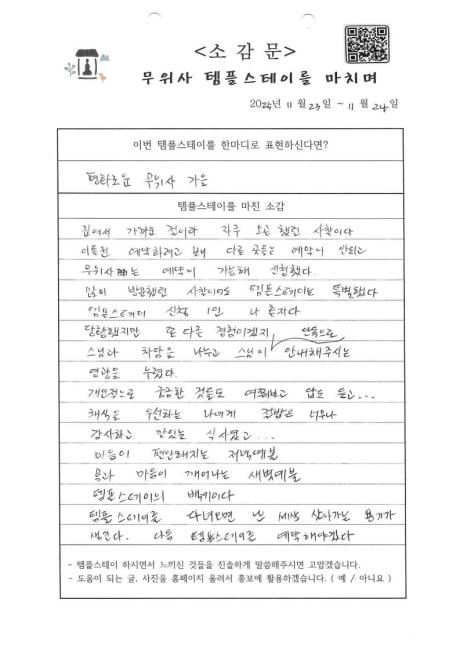 <소 감 문>
무위사 템플스테이를 마치며
2024년 11월 23일 ~ 11월 24일
이번 템플스테이를 한마디로 표현하신다면?
평화로운 무위사 가을
템플스테이를 마친 소감
집에서 가까운 절이라 자주 오곤 했던 사찰이다
이틀전 예약하려고 보니 다른 곳들은 예약이 안되고
무위사는 예약이 가능해 신청했다.
많이 방문했던 사찰이어도 템플스테이는 특별했다
템플스테이 신청 1인 나 혼자다
당황했지만 또 다른 경험이겠지 단독으로
스님과 차담을 나누고 스님이 안내해주시는
영광을 누렸다.
개인적으로 궁금한 것들도 여쭤보고 답도 듣고...
채식을 우선하는 나에게 절밥은 너무나
감사하고 맛있는 식사였고...
마음이 편안해지는 저녁예불
몸과 마음이 깨어나는 새벽예불
템플스테이의 백미이다
템플스테이를 다녀오면 난 세상 살아가는 용기가
생긴다. 다음 템플스테이를 예약해야겠다
- 템플스테이 하시면서 느끼신 것들을 진솔하게 말씀해주시면 고맙겠습니다.
- 도움이 되는 글, 사진을 홈페이지 올려서 홍보에 활용하겠습니다. ( 예 / 아니요 )